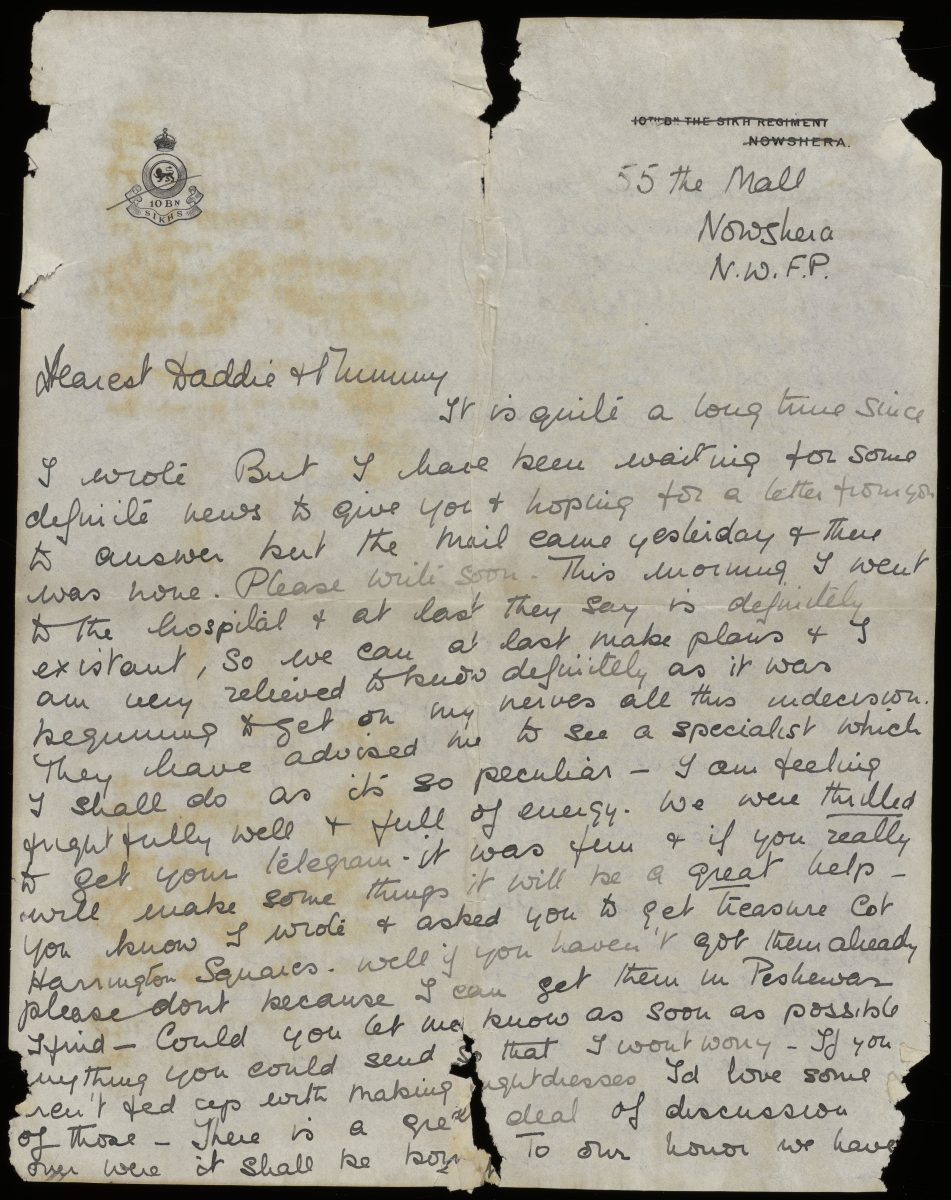 10TH BN THE SIKH REGIMENT
NOWSHERA.
10 BN
SIKHS
55 the Mall
Nowshera
N.W.F.P.
Dearest Daddie & Mummy
It is quite a long time since
I wrote But I have been waiting for some
definite news to give you & hoping for a letter from you
to answer but the mail came yesterday & there
was none. Please write soon. This morning I went
to the hospital & at last they say is definitely
existant, so we can at last make plans & I
am very relieved to know definitely as it was
beginning to get on my nerves all this indecision.
They have advised me to see a specialist which
I shall do as it's so peculiar – I am feeling
frightfully well & full of energy. We were thrilled
to get your telegram - it was fun & if you really
will make some things it will be a great help –
you know I wrote & asked you to get treasure Cot
Harrington Squares. Well if you haven't got them already
please dont because I can get them in Peshewar
I find – Could you let me know as soon as possible
nything you could send so that I wont worry – If you
ren't fed up with making ightdresses I'd love some
of those – There is a great deal of discussion
over were it shall be born To our honor we have